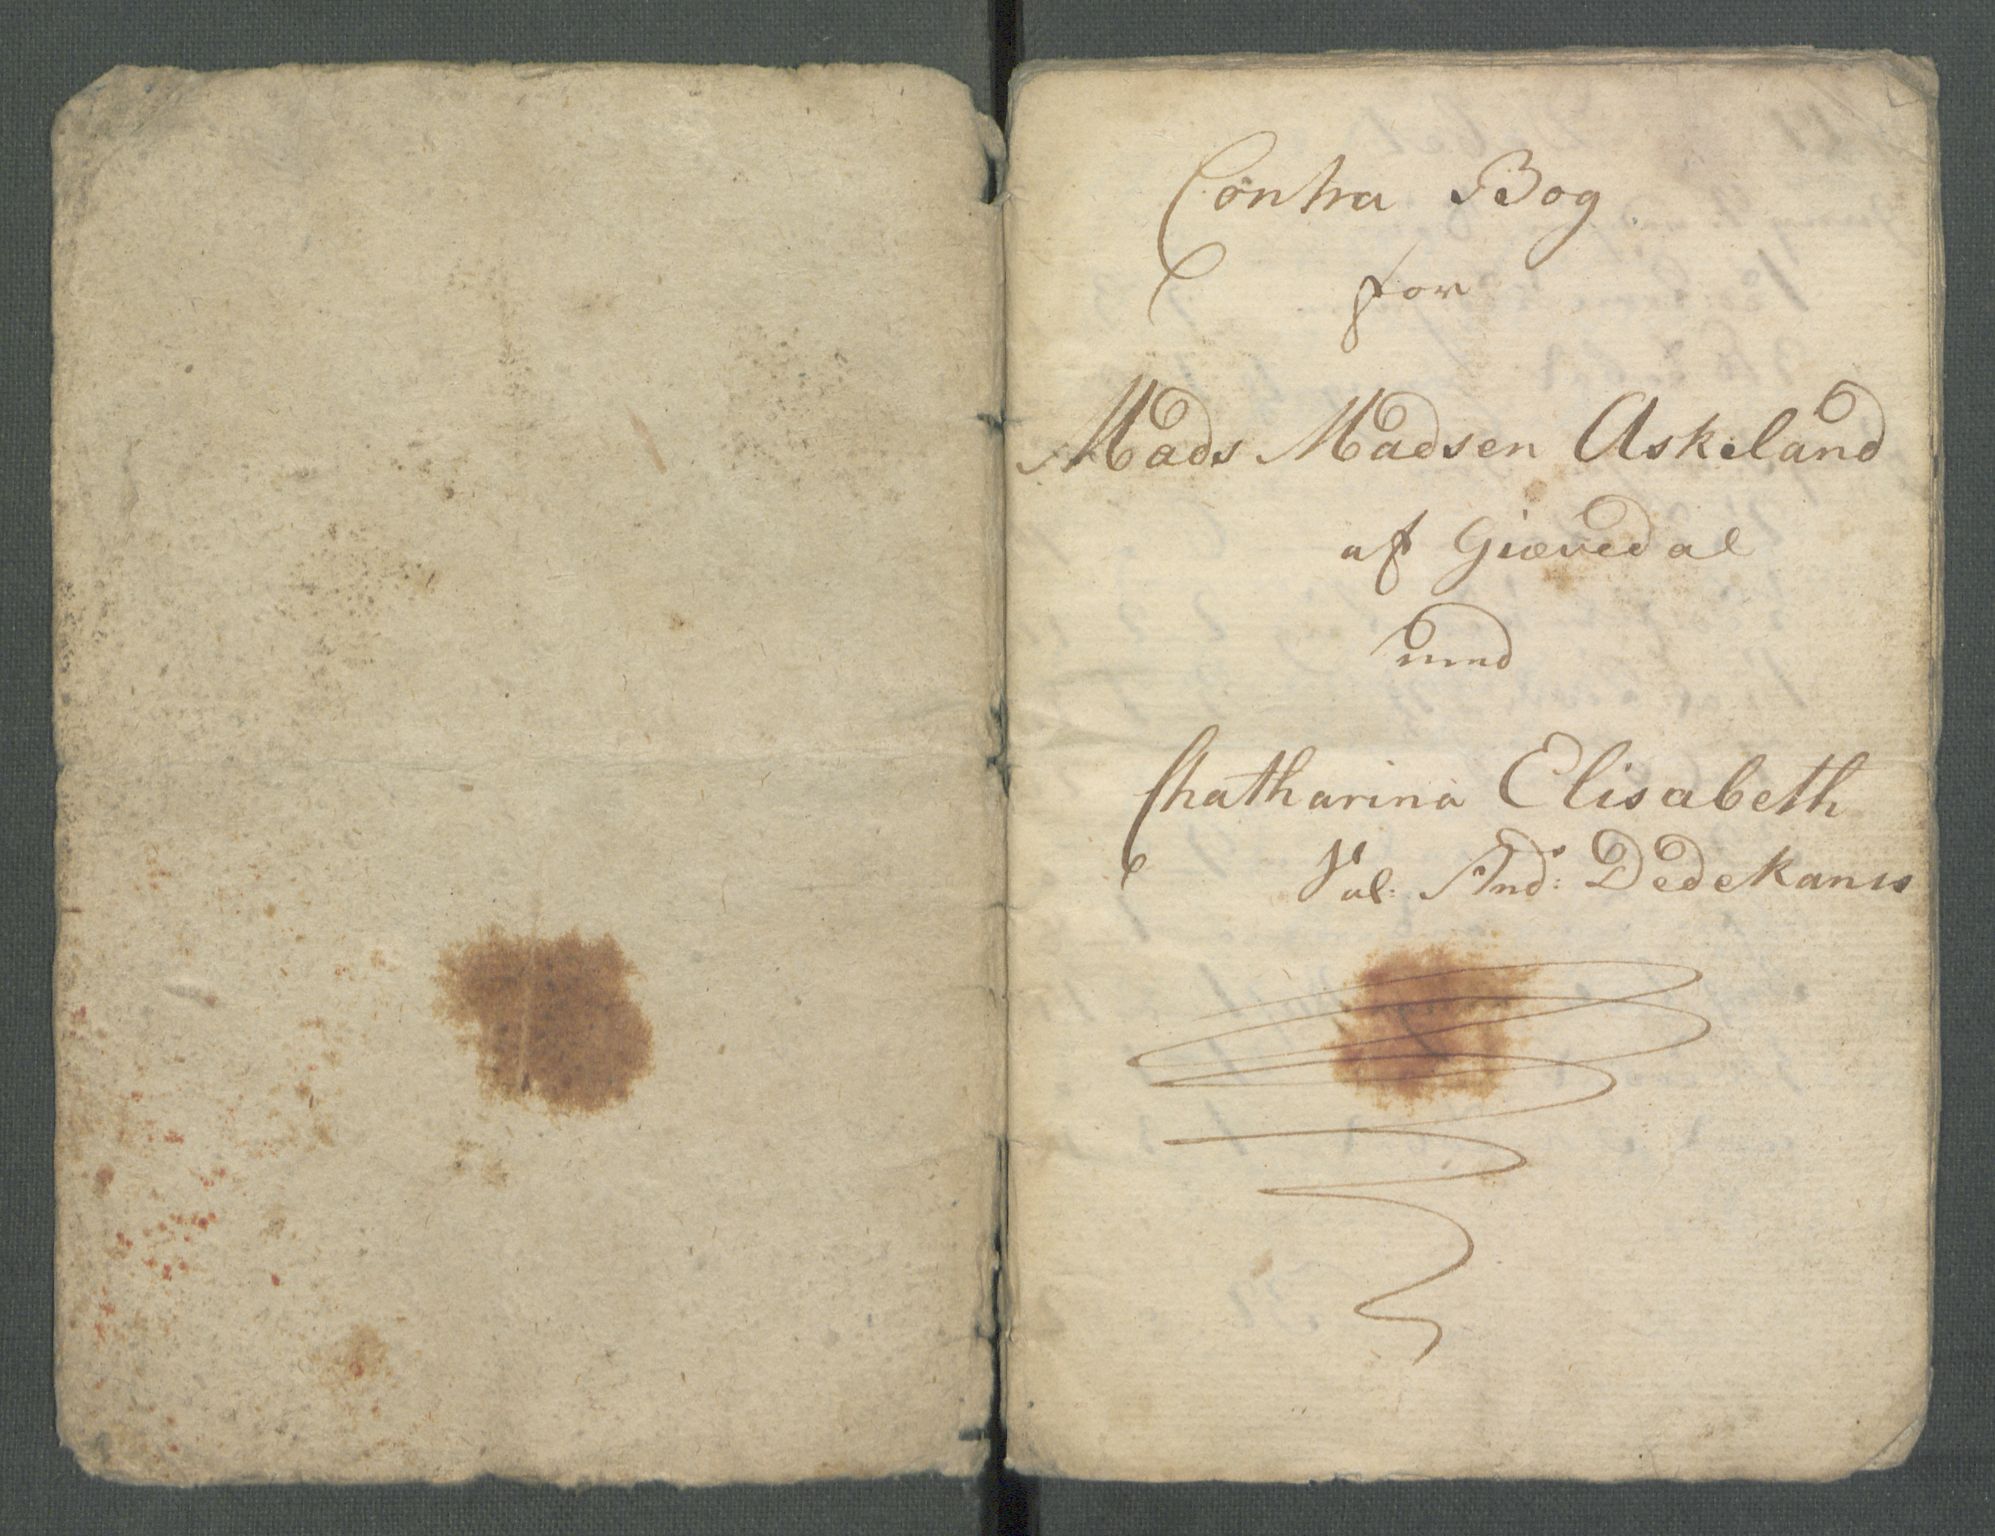 Contra Bog
for
Mads Madsen Askeland
af Giævedal
med
Chatharina Elisabeth
Sal: And: Dedekams